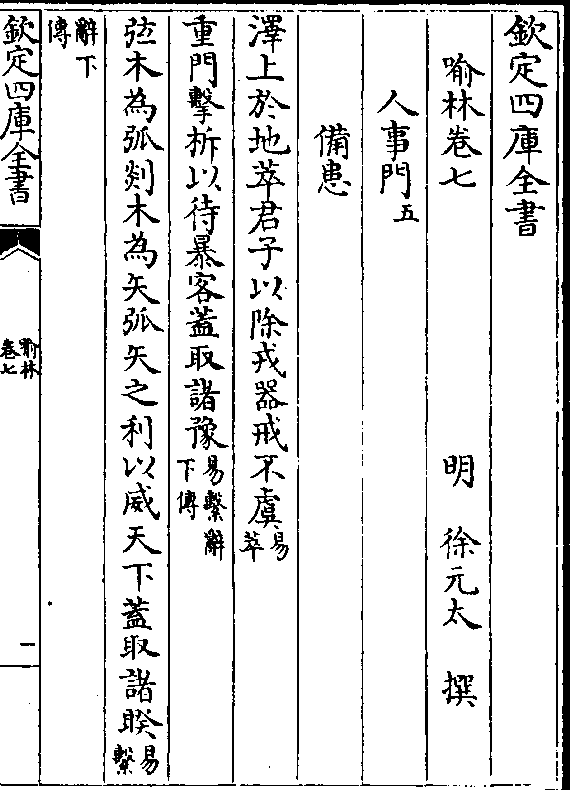 欽定四庫全書
喻林卷七
明 徐元太 撰
人事門五
備患
澤上於地萃君子以除戎器戒不虞易萃
重門擊柝以待暴客蓋取諸豫易繫辭下傳
弦木為弧剡木為矢弧矢之利以威天下蓋取諸睽易繫
辭下傳
欽定四庫全書
喻林卷七
一